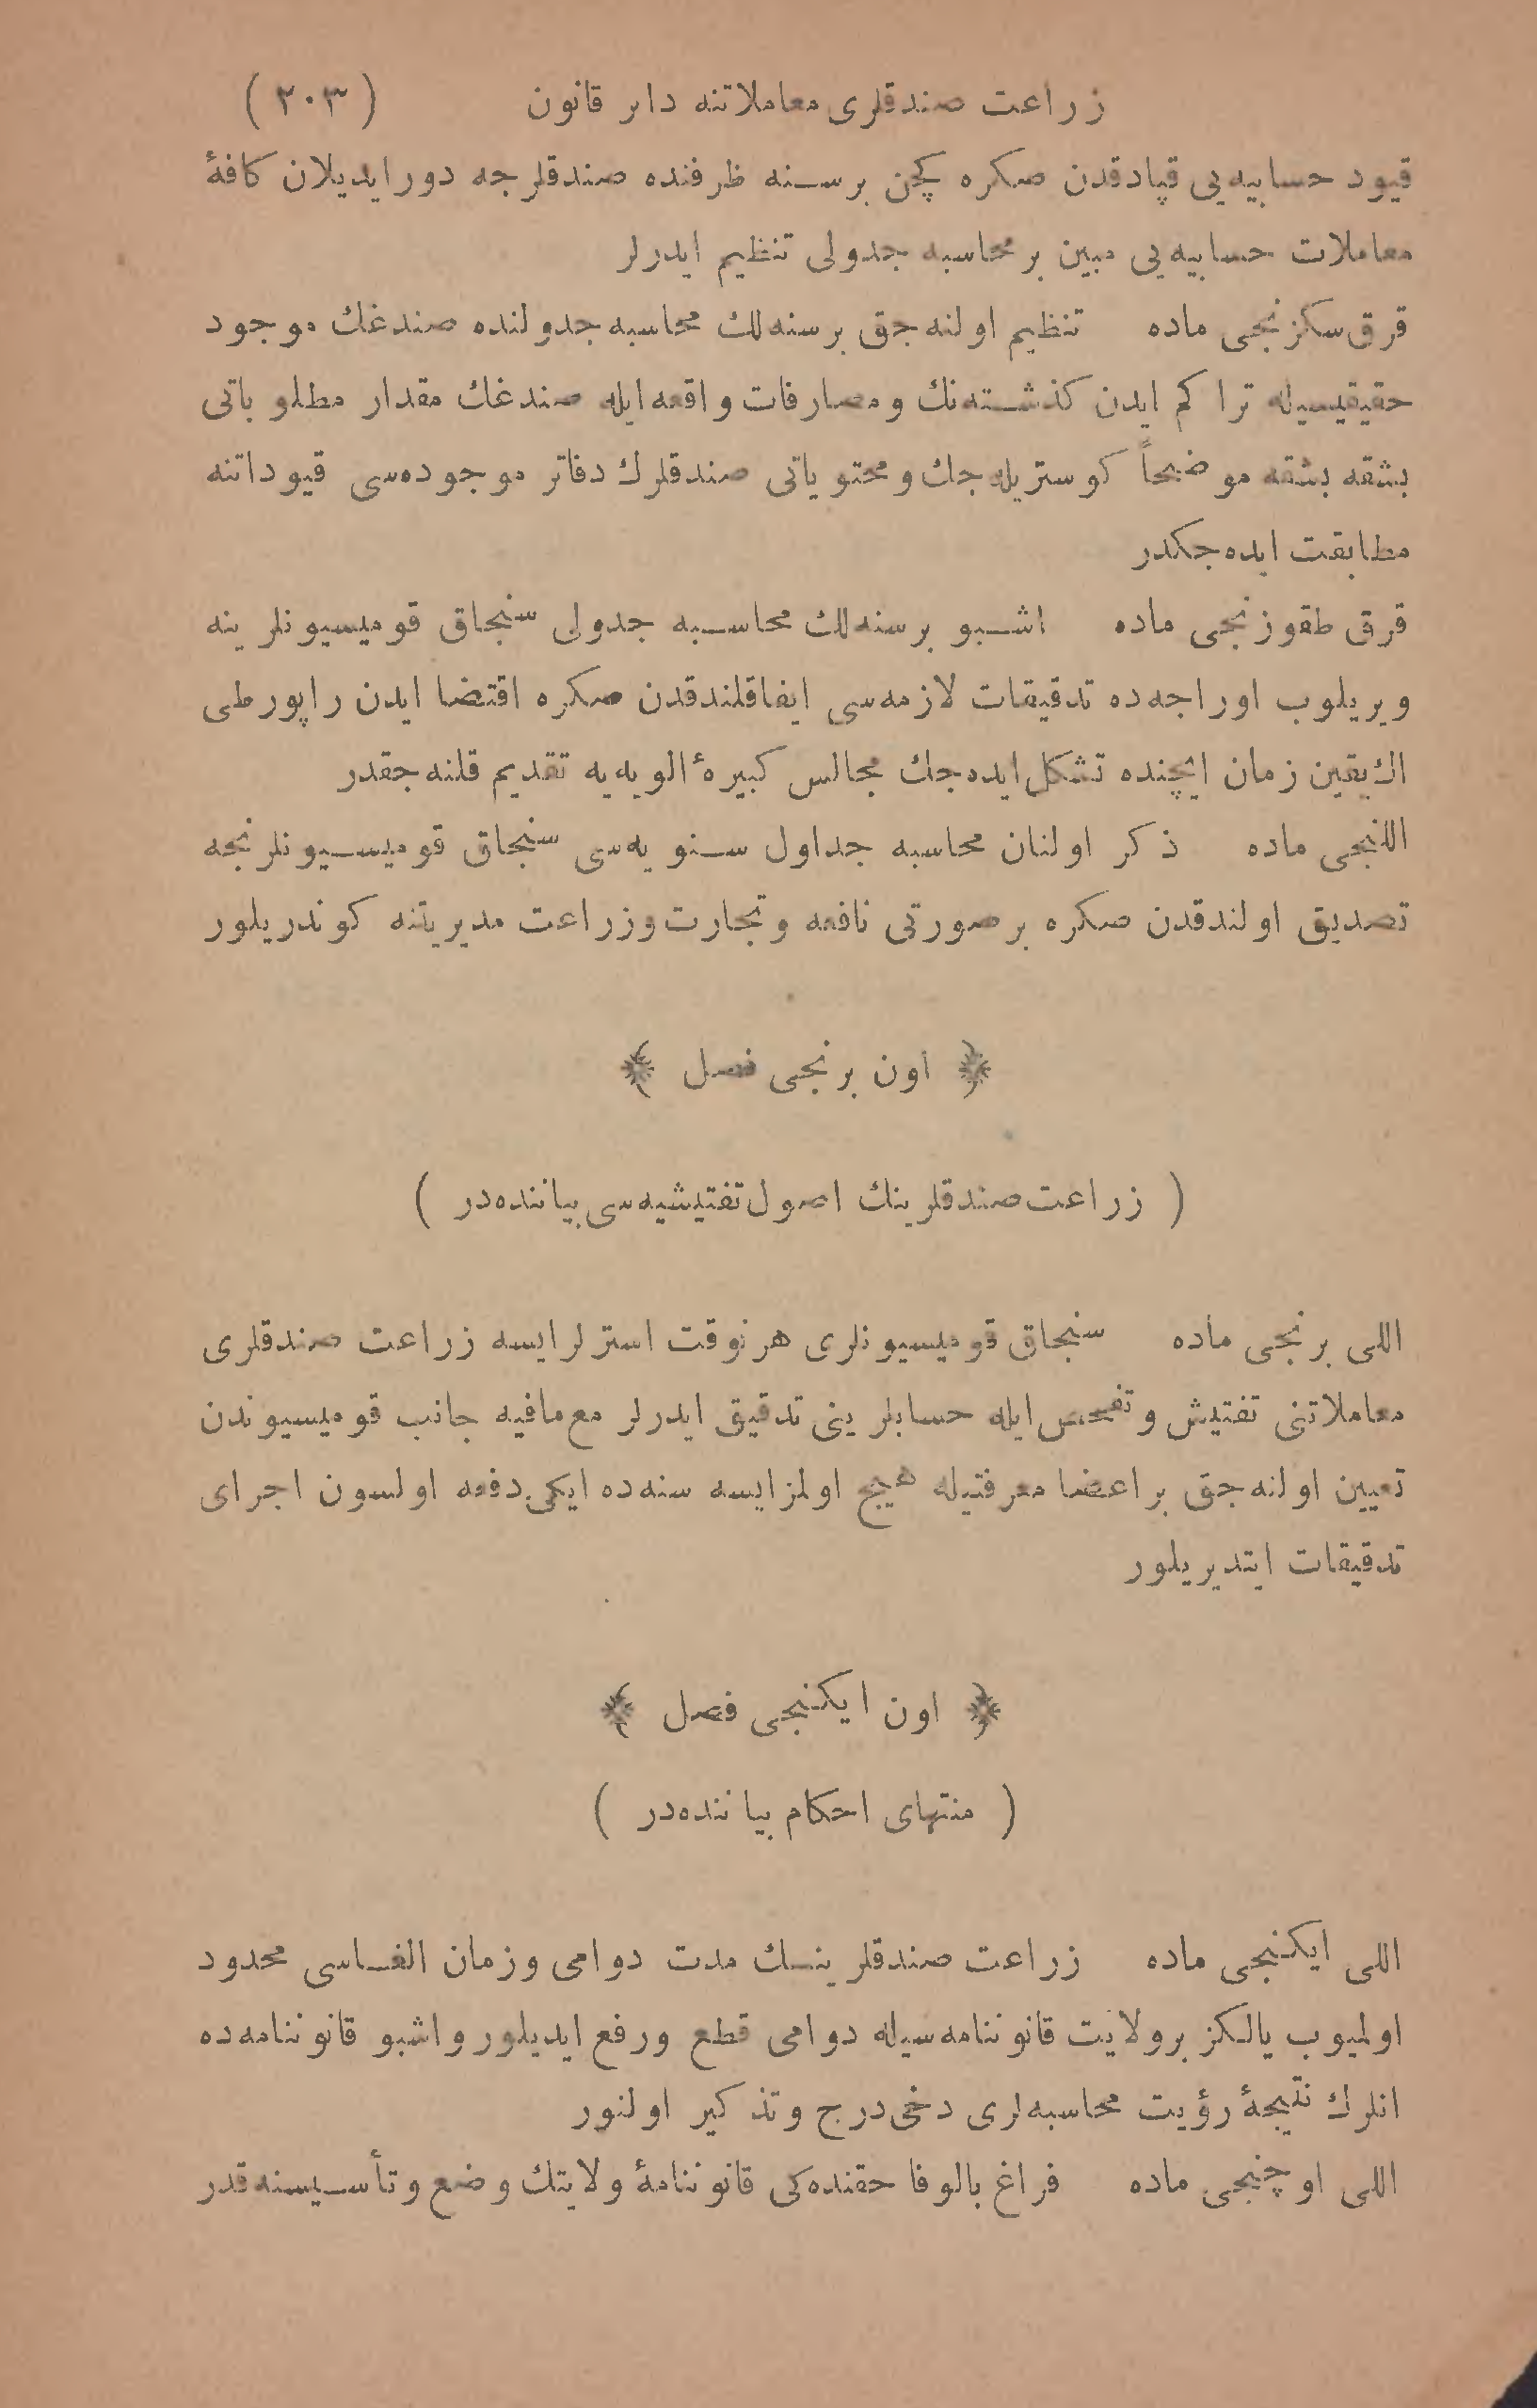 زراعت صندقلری معاملاتنه دائر قانون (٢٠٣)
قیود حسابیه‌یی قپادقدن صكره كچن برسنه ظرفنده صندقلرجه دورایدیلان كافهٔ
معاملات حسابیه‌یی مبین بر محاسبه جدولی تنظیم ایدرلر
قرق سكزنجی ماده تنظیم اولنه‌جق برسنه‌لك محاسبه جدولنده صندغك موجود
حقیقیسیله تراكم ایدن كذشته‌نك ومصارفات واقعه‌ایله صندغك مقدار مطلوباتی
بشقه بشقه موضحاً كوستریله‌جك ومحتویاتی صندقلرك دفاتر موجوده‌سی قیوداتنه
مطابقت ایده‌جكدر
قرق طقوزنجی ماده اشبو برسنه‌لك محاسبه جدولی سنجاق قومیسیونلرینه
ویریلوب اوراجه‌ده تدقیقات لازمه‌سی ایفاقلندقدن صكره اقتضا ایدن راپورطی
اك یقین زمان ایچنده تشكل ایده‌جك مجالس كبیرهٔ الویه‌یه تقدیم قلنه‌جقدر
اللنجی ماده ذكر اولنان محاسبه جداول سنویه‌سی سنجاق قومیسیونلرنجه
تصدیق اولندقدن صكره برصورتی نافعه وتجارت وزراعت مدیریتنه كوندریلور
﴿ اون برنجی فصل ﴾
( زراعت صندقلرینك اصول تفتیشیه‌سی بیاننده‌در )
اللی برنجی ماده سنجاق قومیسیونلری هرنوقت استرلرایسه زراعت صندقلری
معاملاتنی تفتیش وتفحص ایله حسابلرینی تدقیق ایدرلر مع‌مافیه جانب قومیسیوندن
تعیین اولنه‌جق براعضا معرفتیله هیچ اولمزایسه سنه‌ده ایكی دفعه اولسون اجرای
تدقیقات ایتدیریلور
﴿ اون ایكنجی فصل ﴾
( منتهای احكام بیاننده‌در )
اللی ایكنجی ماده زراعت صندقلرینك مدت دوامی وزمان الغاسی محدود
اولمیوب یالكز برولایت قانوننامه‌سیله دوامی قطع ورفع ایدیلور واشبو قانوننامه‌ده
انلرك نتیجهٔ رؤیت محاسبه‌لری دخی درج وتذكیر اولنور
اللی اوچنجی ماده فراغ بالوفا حقنده‌كی قانوننامهٔ ولایتك وضع وتأسیسنه‌قدر